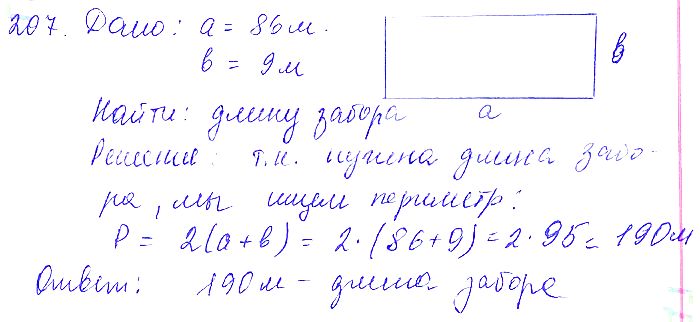 207. Дано: a = 86 м.
в = 9 м
в
Найти: длину забора
a
Решение: т.к. нужна длина забо-
ра, мы ищем периметр:
P = 2(a+в) = 2·(86+9) = 2·95 = 190 м
Ответ: 190 м - длина забора